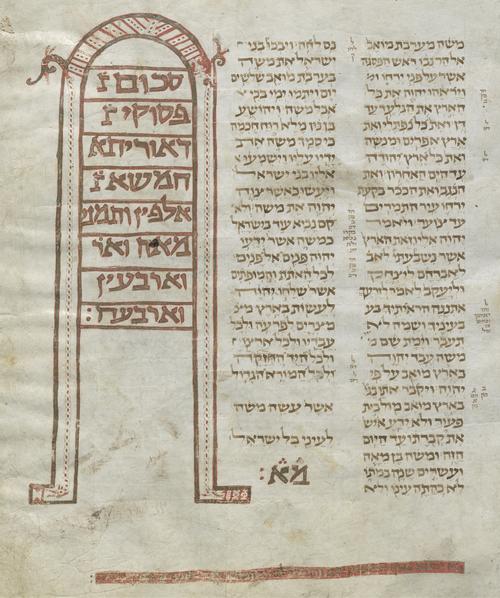 משה מערבת מואב
אל הר נבו ראש הפסגה
אשר על פני ירחו
ויראהו יהוה את כל
הארץ את הגלעד עד
דן ואת כל נפתלי ואת
ארץ אפרים ומנשה
ואת כל ארץ יהודה
עד הים האחרון ואת
הנגב ואת הככר בקעת
ירחו עיר התמרים
עד צוער ויאמר
יהוה אליו זאת הארץ
אשר נשבעתי לאב
לאברהם ליצחק
וליעקב לאמר לזרעך
אתננה הראיתיך בע
בעיניך ושמה לא
תעבר וימת שם מ
משה עבד יהוה
בארץ מואב על פי
יהוה ויקבר אתו בגי
בארץ מואב מול בית
פעור ולא ידע איש
את קברתו עד היום
הזה ומשה בן מאה
ועשרים שנה במתו
לא כהתה עינו ולא
נס לחה ויבכו בני
ישראל את משה
בערבת מואב שלשים
יום ויתמו ימי בכי
אבל משה ויהושע
בן נון מלא רוח חכמה
כי סמך משה את י
ידיו עליו וישמעו
אליו בני ישראל
ויעשו כאשר צוה
יהוה את משה ולא
קם נביא עוד בישראל
כמשה אשר ידעו
יהוה פנים אל פנים
לכל האתת והמופתים
אשר שלחו יהוה
לעשות בארץ מצ
מצרים לפרעה ולכל
עבדיו ולכל ארצו
ולכל היד החזקה
ולכל המורא הגדול
אשר עשה משה
לעיני כל ישראל
מא:
סכום
פסוקי
דאוריתא
חמשא
אלפין ותמנ
מאה וא
וארבעין
וארבעה: